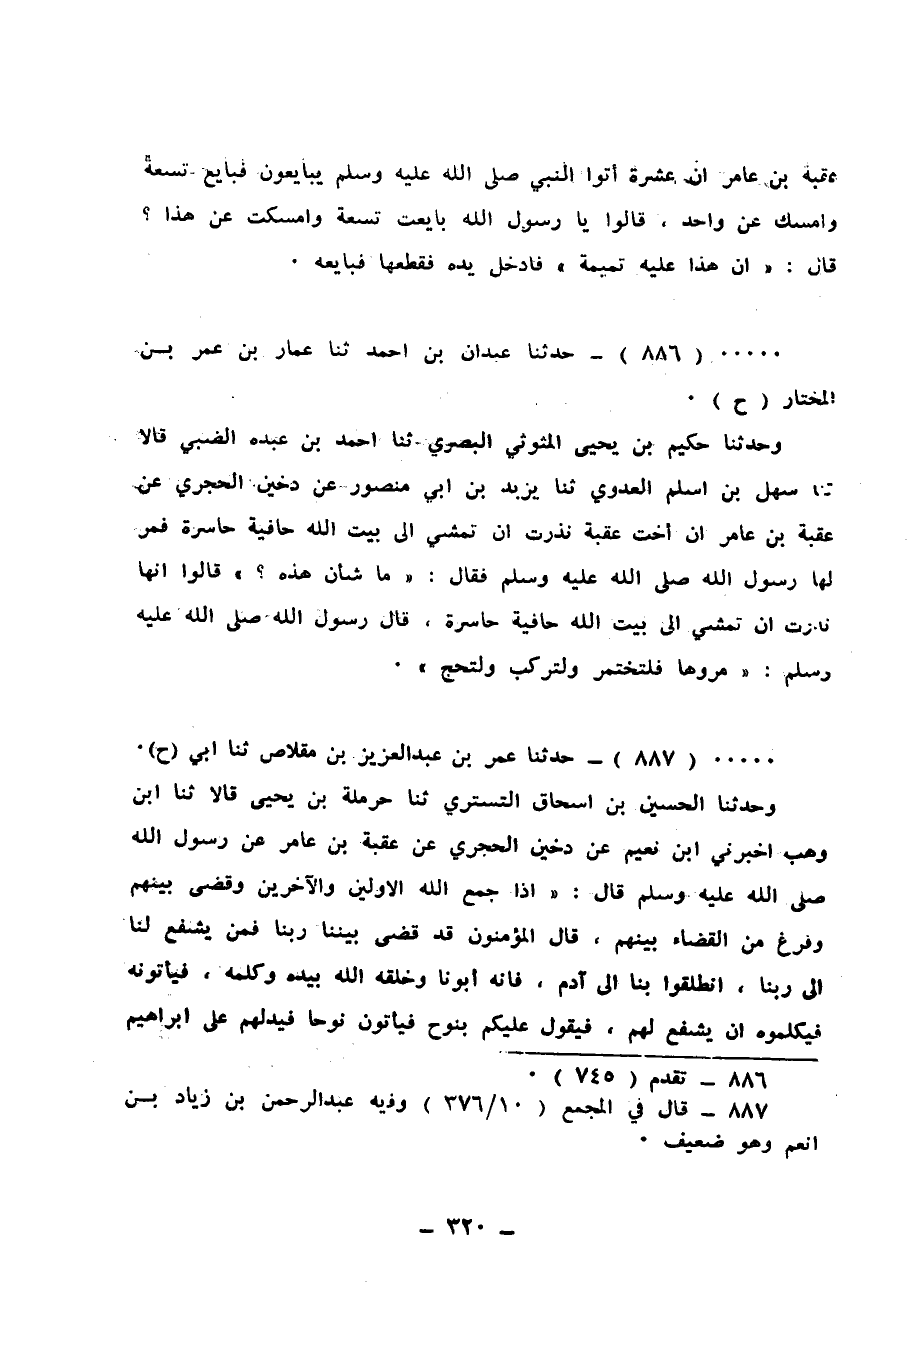 عقبة بن عامر ان عشرة أتوا النبي صلى الله عليه وسلم يبايعون فبايع تسعة
وامسك عن واحد ، قالوا يا رسول الله بايعت تسعة وامسكت عن هذا ؟
قال : « ان هذا عليه تميمة » فادخل يده فقطعها فبايعه ٠
٠٠٠٠٠ ( ٨٨٦ ) ــ حدثنا عبدان بن احمد ثنا عمار بن عمر بـــن
المختار ( ح ) ٠
وحدثنا حكيم بن يحيى المثوثي البصري ثنا احمد بن عبده الضبي قالا
ثنا سهل بن اسلم العدوي ثنا يزيد بن ابي منصور عن دخين الحجري عن
عقبة بن عامر ان أخت عقبة نذرت ان تمشي الى بيت الله حافية حاسرة فمر
لها رسول الله صلى الله عليه وسلم فقال : « ما شأن هذه ؟ » قالوا انها
نذرت ان تمشي الى بيت الله حافية حاسرة ، قال رسول الله صلى الله عليه
وسلم : « مروها فلتختمر ولتركب ولتحج » ٠
٠٠٠٠٠ ( ٨٨٧ ) ــ حدثنا عمر بن عبدالعزيز بن مقلاص ثنا ابي (ح)٠
وحدثنا الحسين بن اسحاق التستري ثنا حرملة بن يحيى قالا ثنا ابن
وهب اخبرني ابن نعيم عن دخين الحجري عن عقبة بن عامر عن رسول الله
صلى الله عليه وسلم قال : « اذا جمع الله الاولين والآخرين وقضى بينهم
وفرغ من القضاء بينهم ، قال المؤمنون قد قضى بيننا ربنا فمن يشفع لنا
الى ربنا ، انطلقوا بنا الى آدم ، فانه أبونا وخلقه الله بيده وكلمه ، فيأتونه
فيكلموه ان يشفع لهم ، فيقول عليكم بنوح فيأتون نوحا فيدلهم على ابراهيم
٨٨٦ ــ تقدم ( ٧٤٥ ) ٠
٨٨٧ ــ قال في المجمع ( ٣٧٦/١٠ ) وفيه عبدالرحمن بن زياد بـــن
انعم وهو ضعيف ٠
ــ ٣٢٠ ــ